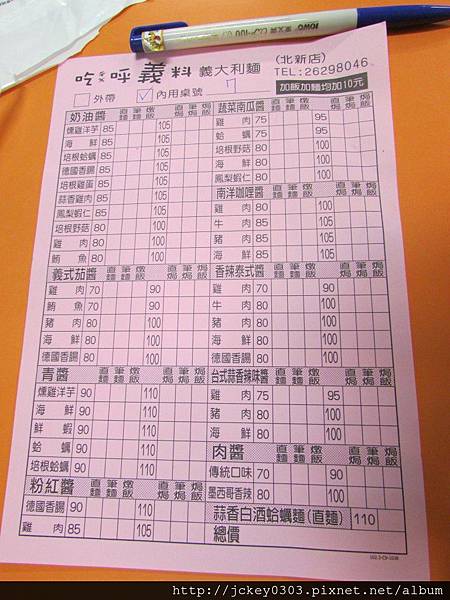 吃ㄆ呼義料 義大利麵 (北新店)
TEL:26298046
外帶 ✓ 內用桌號 17 加飯加麵均加10元
奶油醬 直麵 筆麵 燉飯 直焗 筆焗 焗飯
燻雞洋芋 85 105
海鮮 85
培根蛤蠣 80
德國香腸 80
培根雞蛋 80
蒜香雞肉 85
鳳梨蝦仁 85
培根野菇 80
雞肉 80 100
鮪魚 80
義式茄醬 直麵 筆麵 燉飯 直焗 筆焗 焗飯
雞肉 70 90
鮪魚 70
豬肉 80 100
海鮮 80
德國香腸 80 100
青醬 直麵 筆麵 燉飯 直焗 筆焗 焗飯
燻雞洋芋 90 110
海鮮 90
鮮蝦 90 110
蛤蠣 90
培根蛤蠣 90 110
粉紅醬 直麵 筆麵 燉飯 直焗 筆焗 焗飯
德國香腸 90 110
雞肉 85 105
蔬菜南瓜醬 直麵 筆麵 燉飯 直焗 筆焗 焗飯
雞肉 75 95
蛤蠣 75
培根野菇 80 100
海鮮 80
鳳梨蝦仁 80
南洋咖哩醬 直麵 筆麵 燉飯 直焗 筆焗 焗飯
雞肉 80 100
牛肉 85 105
豬肉 85
海鮮 85 105
香辣泰式醬 直麵 筆麵 燉飯 直焗 筆焗 焗飯
雞肉 70 90
牛肉 80
豬肉 80 100
海鮮 80
德國香腸 80 100
台式蒜香辣味醬 直麵 筆麵 燉飯 直焗 筆焗 焗飯
雞肉 75 95
豬肉 80
海鮮 80 100
肉醬 直麵 筆麵 燉飯 直焗 筆焗 焗飯
傳統口味 70 90
墨西哥香辣 80 100
蒜香白酒蛤蠣麵(直麵) 110
總價
http://jckey0303.pixnet.net/album